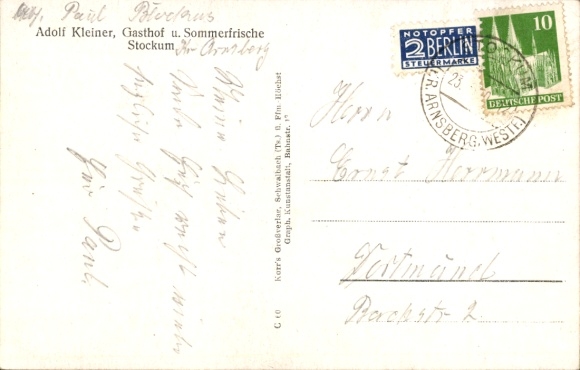 Abs. Paul Blockus
Adolf Kleiner, Gasthof u. Sommerfrische
Stockum Kr Arnsberg
Meine Lieben
herzliche Grüße
Euer Paul
C 60 Korr's Großverlag, Schwalbach (Ts.) ü. Ffm-Höchst
Graph. Kunstanstalt, Bahnstr. 1ª
NOTOPFER
2 BERLIN
STEUERMARKE
10
DEUTSCHE POST
23.
ARNSBERG (WESTF.)
Herrn
Ernst Herrmann
Dortmund
Bachstr 2